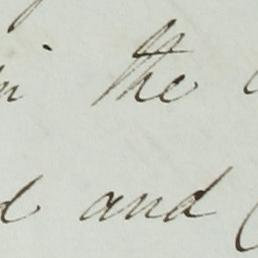 in the
and